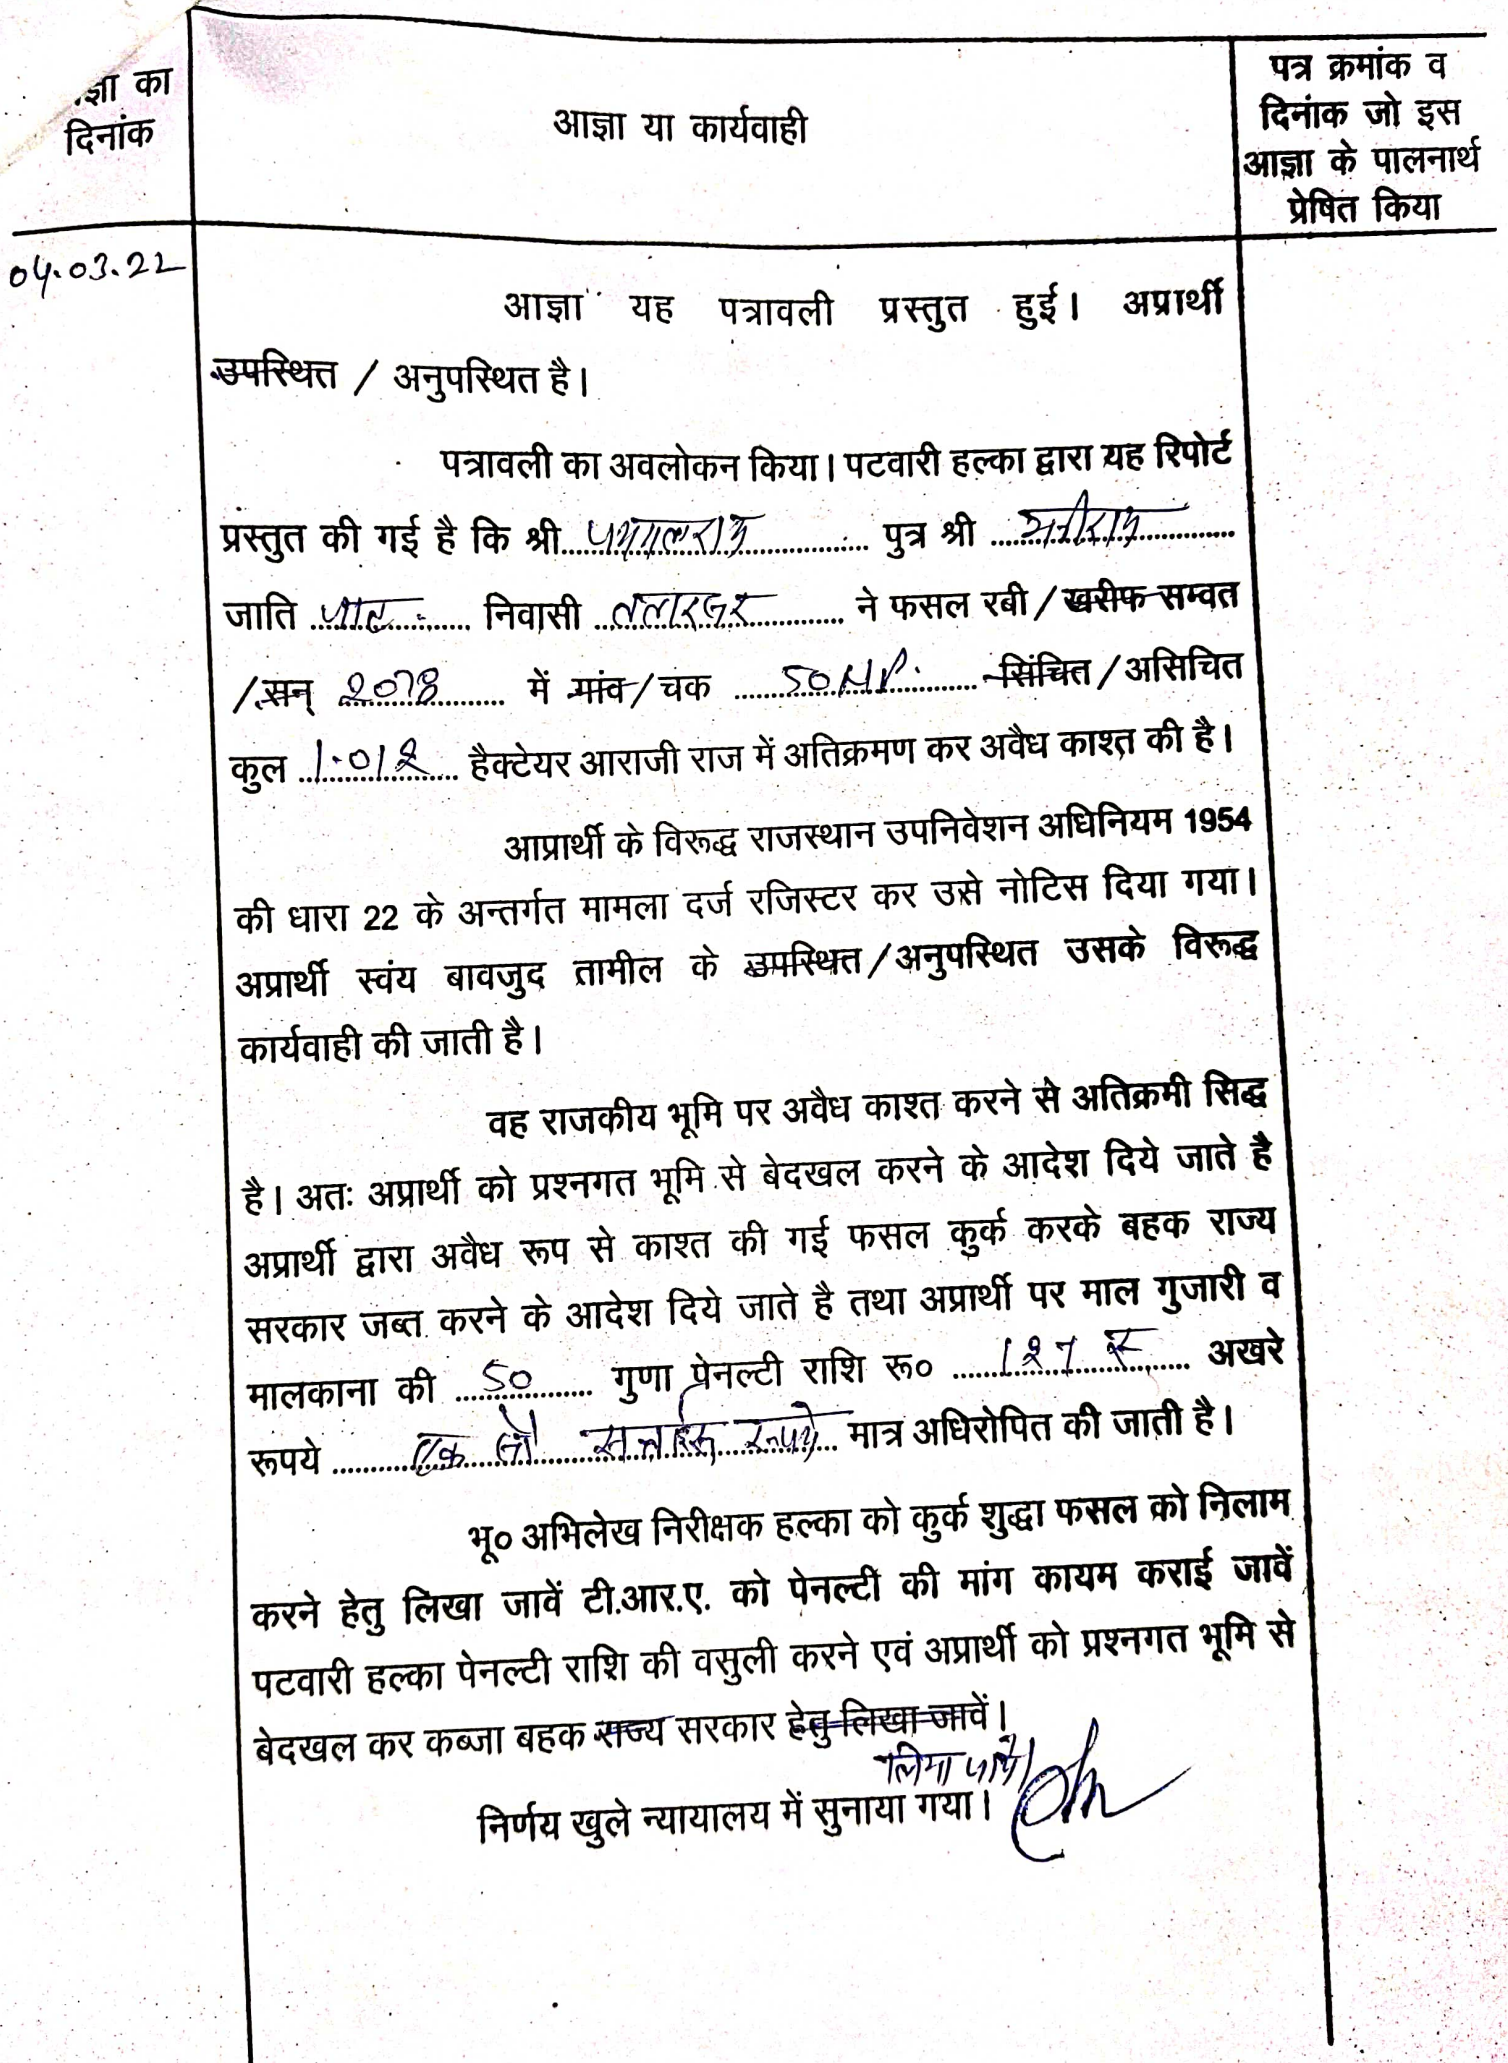 ज्ञा का
दिनांक
आज्ञा या कार्यवाही
पत्र क्रमांक व
दिनांक जो इस
आज्ञा के पालनार्थ
प्रेषित किया
04.03.22
आज्ञा यह पत्रावली प्रस्तुत हुई। अप्रार्थी
उपस्थित / अनुपस्थित है।
पत्रावली का अवलोकन किया। पटवारी हल्का द्वारा यह रिपोर्ट
प्रस्तुत की गई है कि श्री .......... पुत्र श्री ..........
जाति .......... निवासी .......... ने फसल रबी / खरीफ सम्वत
/ सन् 2078 में गांव / चक 50NP. सिंचित / असिचित
कुल 1.012 हैक्टेयर आराजी राज में अतिक्रमण कर अवैध काश्त की है।
आप्रार्थी के विरूद्ध राजस्थान उपनिवेशन अधिनियम 1954
की धारा 22 के अन्तर्गत मामला दर्ज रजिस्टर कर उसे नोटिस दिया गया।
अप्रार्थी स्वंय बावजुद तामील के उपस्थित / अनुपस्थित उसके विरूद्ध
कार्यवाही की जाती है।
वह राजकीय भूमि पर अवैध काश्त करने से अतिक्रमी सिद्ध
है। अतः अप्रार्थी को प्रश्नगत भूमि से बेदखल करने के आदेश दिये जाते है
अप्रार्थी द्वारा अवैध रूप से काश्त की गई फसल कुर्क करके बहक राज्य
सरकार जब्त करने के आदेश दिये जाते है तथा अप्रार्थी पर माल गुजारी व
मालकाना की 50 गुणा पेनल्टी राशि रू० 127 रू अखरे
रूपये एक सौ सत्ताईस रूपये मात्र अधिरोपित की जाती है।
भू० अभिलेख निरीक्षक हल्का को कुर्क शुद्धा फसल को निलाम
करने हेतु लिखा जावें टी.आर.ए. को पेनल्टी की मांग कायम कराई जावें
पटवारी हल्का पेनल्टी राशि की वसुली करने एवं अप्रार्थी को प्रश्नगत भूमि से
बेदखल कर कब्जा बहक राज्य सरकार हेतु लिखा जावें।
लिया जावे।
निर्णय खुले न्यायालय में सुनाया गया।